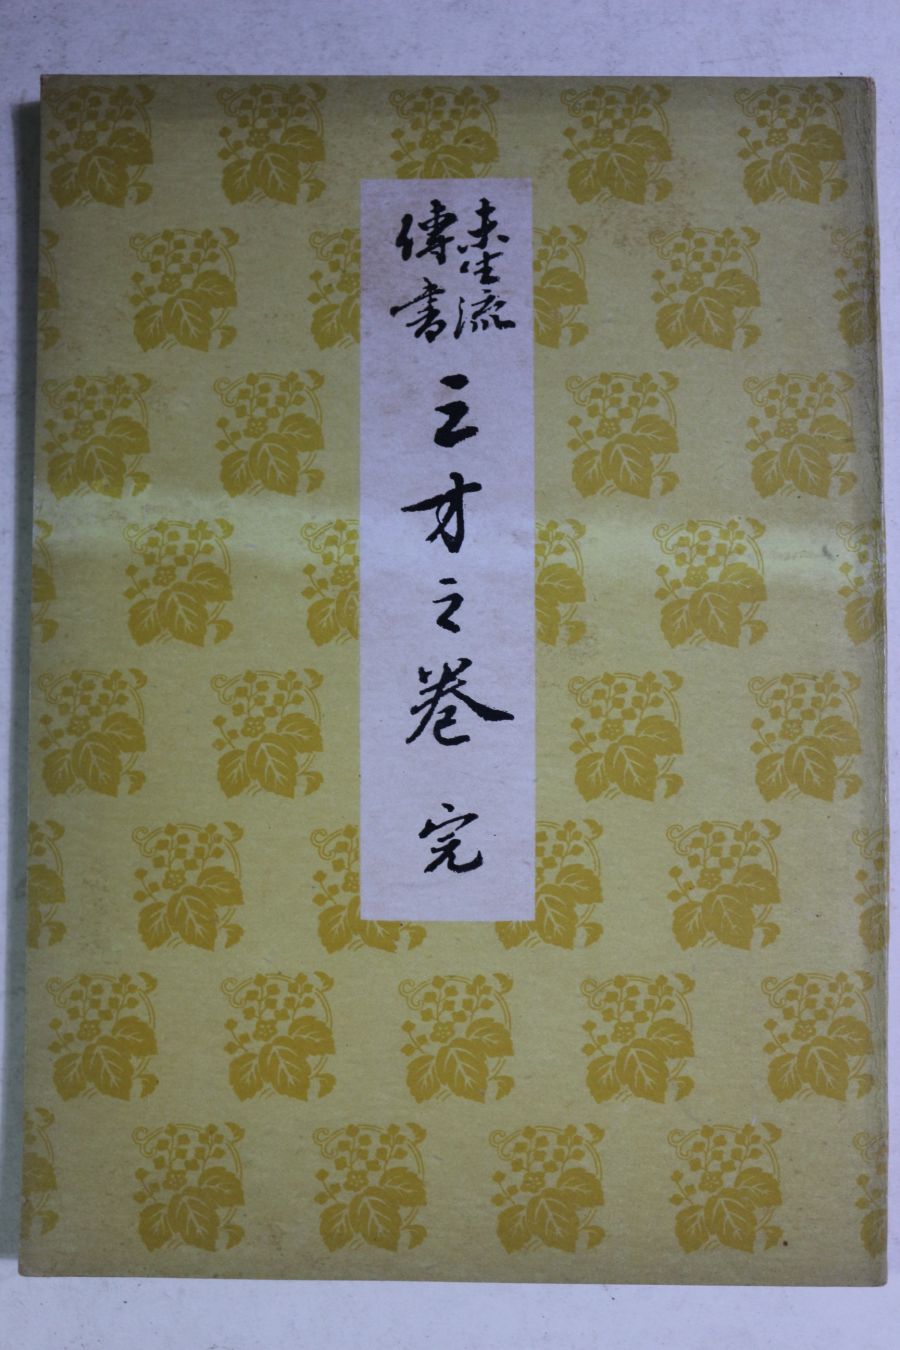 未生流
傳書
三才之巻 完